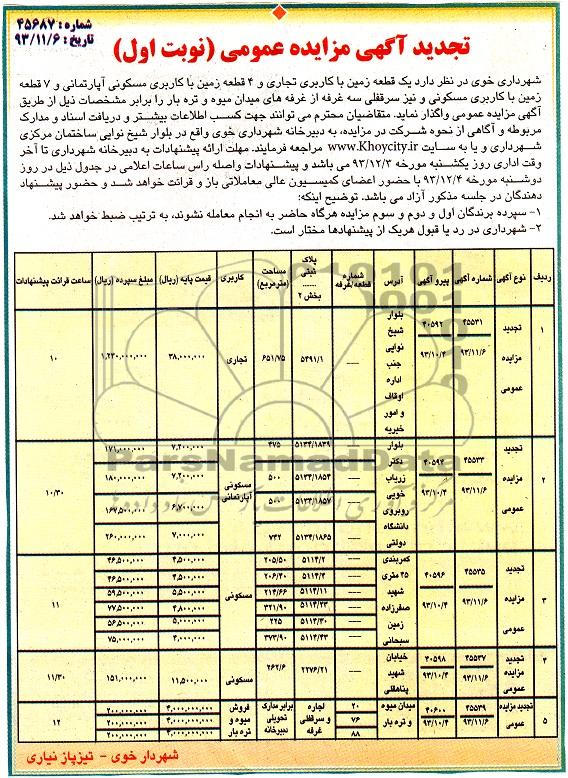 شماره: ۴۵۶۸۷
تاریخ: ۹۳/۱۱/۶
تجدید آگهی مزایده عمومی (نوبت اول)
شهرداری خوی در نظر دارد یک قطعه زمین با کاربری تجاری و ۴ قطعه زمین با کاربری مسکونی آپارتمانی و ۷ قطعه
زمین با کاربری مسکونی و نیز سرقفلی سه غرفه از غرفه های میدان میوه و تره بار را برابر مشخصات ذیل از طریق
آگهی مزایده عمومی واگذار نماید. متقاضیان محترم می توانند جهت کسب اطلاعات بیشتر و دریافت اسناد و مدارک
مربوطه و آگاهی از نحوه شرکت در مزایده، به دبیرخانه شهرداری خوی واقع در بلوار شیخ نوایی ساختمان مرکزی
شهرداری و یا به سایت www.Khoycity.ir مراجعه فرمایند. مهلت ارائه پیشنهادات به دبیرخانه شهرداری تا آخر
وقت اداری روز یکشنبه مورخه ۹۳/۱۲/۳ می باشد و پیشنهادات واصله راس ساعات اعلامی در جدول ذیل در روز
دوشنبه مورخه ۹۳/۱۲/۴ با حضور اعضای کمیسیون عالی معاملاتی باز و قرائت خواهد شد و حضور پیشنهاد
دهندگان در جلسه مذکور آزاد می باشد. توضیح اینکه:
۱- سپرده برندگان اول و دوم و سوم مزایده هرگاه حاضر به انجام معامله نشوند، به ترتیب ضبط خواهد شد.
۲- شهرداری در رد یا قبول هریک از پیشنهادها مختار است.
ردیف نوع آگهی شماره آگهی پیرو آگهی آدرس شماره قطعه/غرفه پلاک ثبتی ...... بخش ۲ مساحت (مترمربع) کاربری قیمت پایه (ریال) مبلغ سپرده (ریال) ساعت قرائت پیشنهادات
۱ تجدید مزایده عمومی ۴۵۵۳۱ ۹۳/۱۱/۶ ۴۰۵۹۲ ۹۳/۱۰/۴ بلوار شیخ نوایی جنب اداره اوقاف و امور خیریه ---- ۵۴۹۱/۱ ۶۵۱/۷۵ تجاری ۳۸,۰۰۰,۰۰۰ ۱,۲۳۰,۰۰۰,۰۰۰ ۱۰
۲ تجدید مزایده عمومی ۴۵۵۳۳ ۹۳/۱۱/۶ ۴۰۵۹۴ ۹۳/۱۰/۴ بلوار دکتر زریاب خویی روبروی دانشگاه دولتی مسکونی آپارتمانی ۱۰/۳۰
---- ۵۱۳۴/۱۸۳۹ ۴۷۵ ۷,۲۰۰,۰۰۰ ۱۷۱,۰۰۰,۰۰۰
---- ۵۱۳۴/۱۸۵۴ ۵۰۰ ۷,۲۰۰,۰۰۰ ۱۸۰,۰۰۰,۰۰۰
---- ۵۱۳۴/۱۸۵۷ ۵۰۰ ۶,۷۰۰,۰۰۰ ۱۶۷,۵۰۰,۰۰۰
---- ۵۱۳۴/۱۸۶۵ ۷۴۲ ۷,۰۰۰,۰۰۰ ۲۶۰,۰۰۰,۰۰۰
۳ تجدید مزایده عمومی ۴۵۵۳۵ ۹۳/۱۱/۶ ۴۰۵۹۶ ۹۳/۱۰/۴ کمربندی ۴۵ متری شهید صفرزاده زمین سبحانی مسکونی ۱۱
---- ۵۱۱۴/۲ ۲۰۵/۵۰ ۴,۵۰۰,۰۰۰ ۴۶,۵۰۰,۰۰۰
---- ۵۱۱۴/۴ ۲۰۶/۴۰ ۴,۵۰۰,۰۰۰ ۴۶,۵۰۰,۰۰۰
---- ۵۱۱۴/۱۱ ۲۱۴/۶۶ ۵,۵۰۰,۰۰۰ ۵۹,۵۰۰,۰۰۰
---- ۵۱۱۴/۲۳ ۳۲۱/۹۰ ۴,۸۰۰,۰۰۰ ۷۷,۵۰۰,۰۰۰
---- ۵۱۱۴/۳۰ ۲۲۵ ۵,۰۰۰,۰۰۰ ۵۶,۵۰۰,۰۰۰
---- ۵۱۱۴/۴۳ ۳۷۳/۹۰ ۴,۰۰۰,۰۰۰ ۷۵,۰۰۰,۰۰۰
۴ تجدید مزایده عمومی ۴۵۵۳۷ ۹۳/۱۱/۶ ۴۰۵۹۸ ۹۳/۱۰/۴ خیابان شهید پناهقلی ---- ۲۲۷۶/۲۱ ۲۶۲/۶ مسکونی ۱۱,۵۰۰,۰۰۰ ۱۵۱,۰۰۰,۰۰۰ ۱۱/۳۰
۵ تجدید مزایده عمومی ۴۵۵۳۹ ۹۳/۱۱/۶ ۴۰۶۰۰ ۹۳/۱۰/۴ میدان میوه و تره بار اجاره و سرقفلی غرفه برابر مدارک تحویلی دبیرخانه فروش میوه و تره بار ۱۲
۲۰ ۴,۰۰۰,۰۰۰,۰۰۰ ۲۰۰,۰۰۰,۰۰۰
۷۶ ۴,۰۰۰,۰۰۰,۰۰۰ ۲۰۰,۰۰۰,۰۰۰
۸۸ ۴,۰۰۰,۰۰۰,۰۰۰ ۲۰۰,۰۰۰,۰۰۰
شهردار خوی - تیزپاز نیاری
ParsNamadData